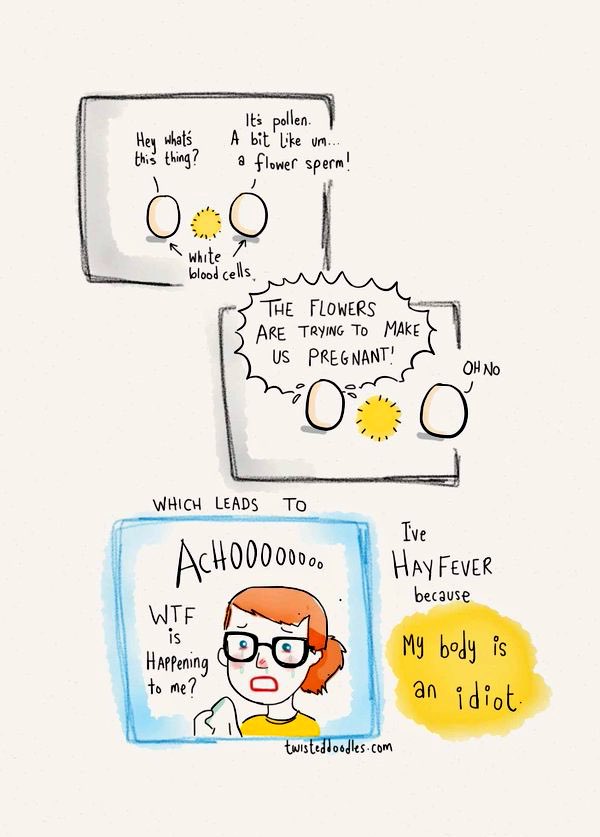 Hey whats
this thing?
Its pollen.
A bit like um...
a flower sperm!
white
blood cells.
THE FLOWERS
ARE TRYING TO MAKE
US PREGNANT!
OH NO
WHICH LEADS TO
ACHOOOOOOOO
WTF
is
HAPPENING
to me?
I've
HAYFEVER
because
My body is
an idiot.
twisteddoodles.com